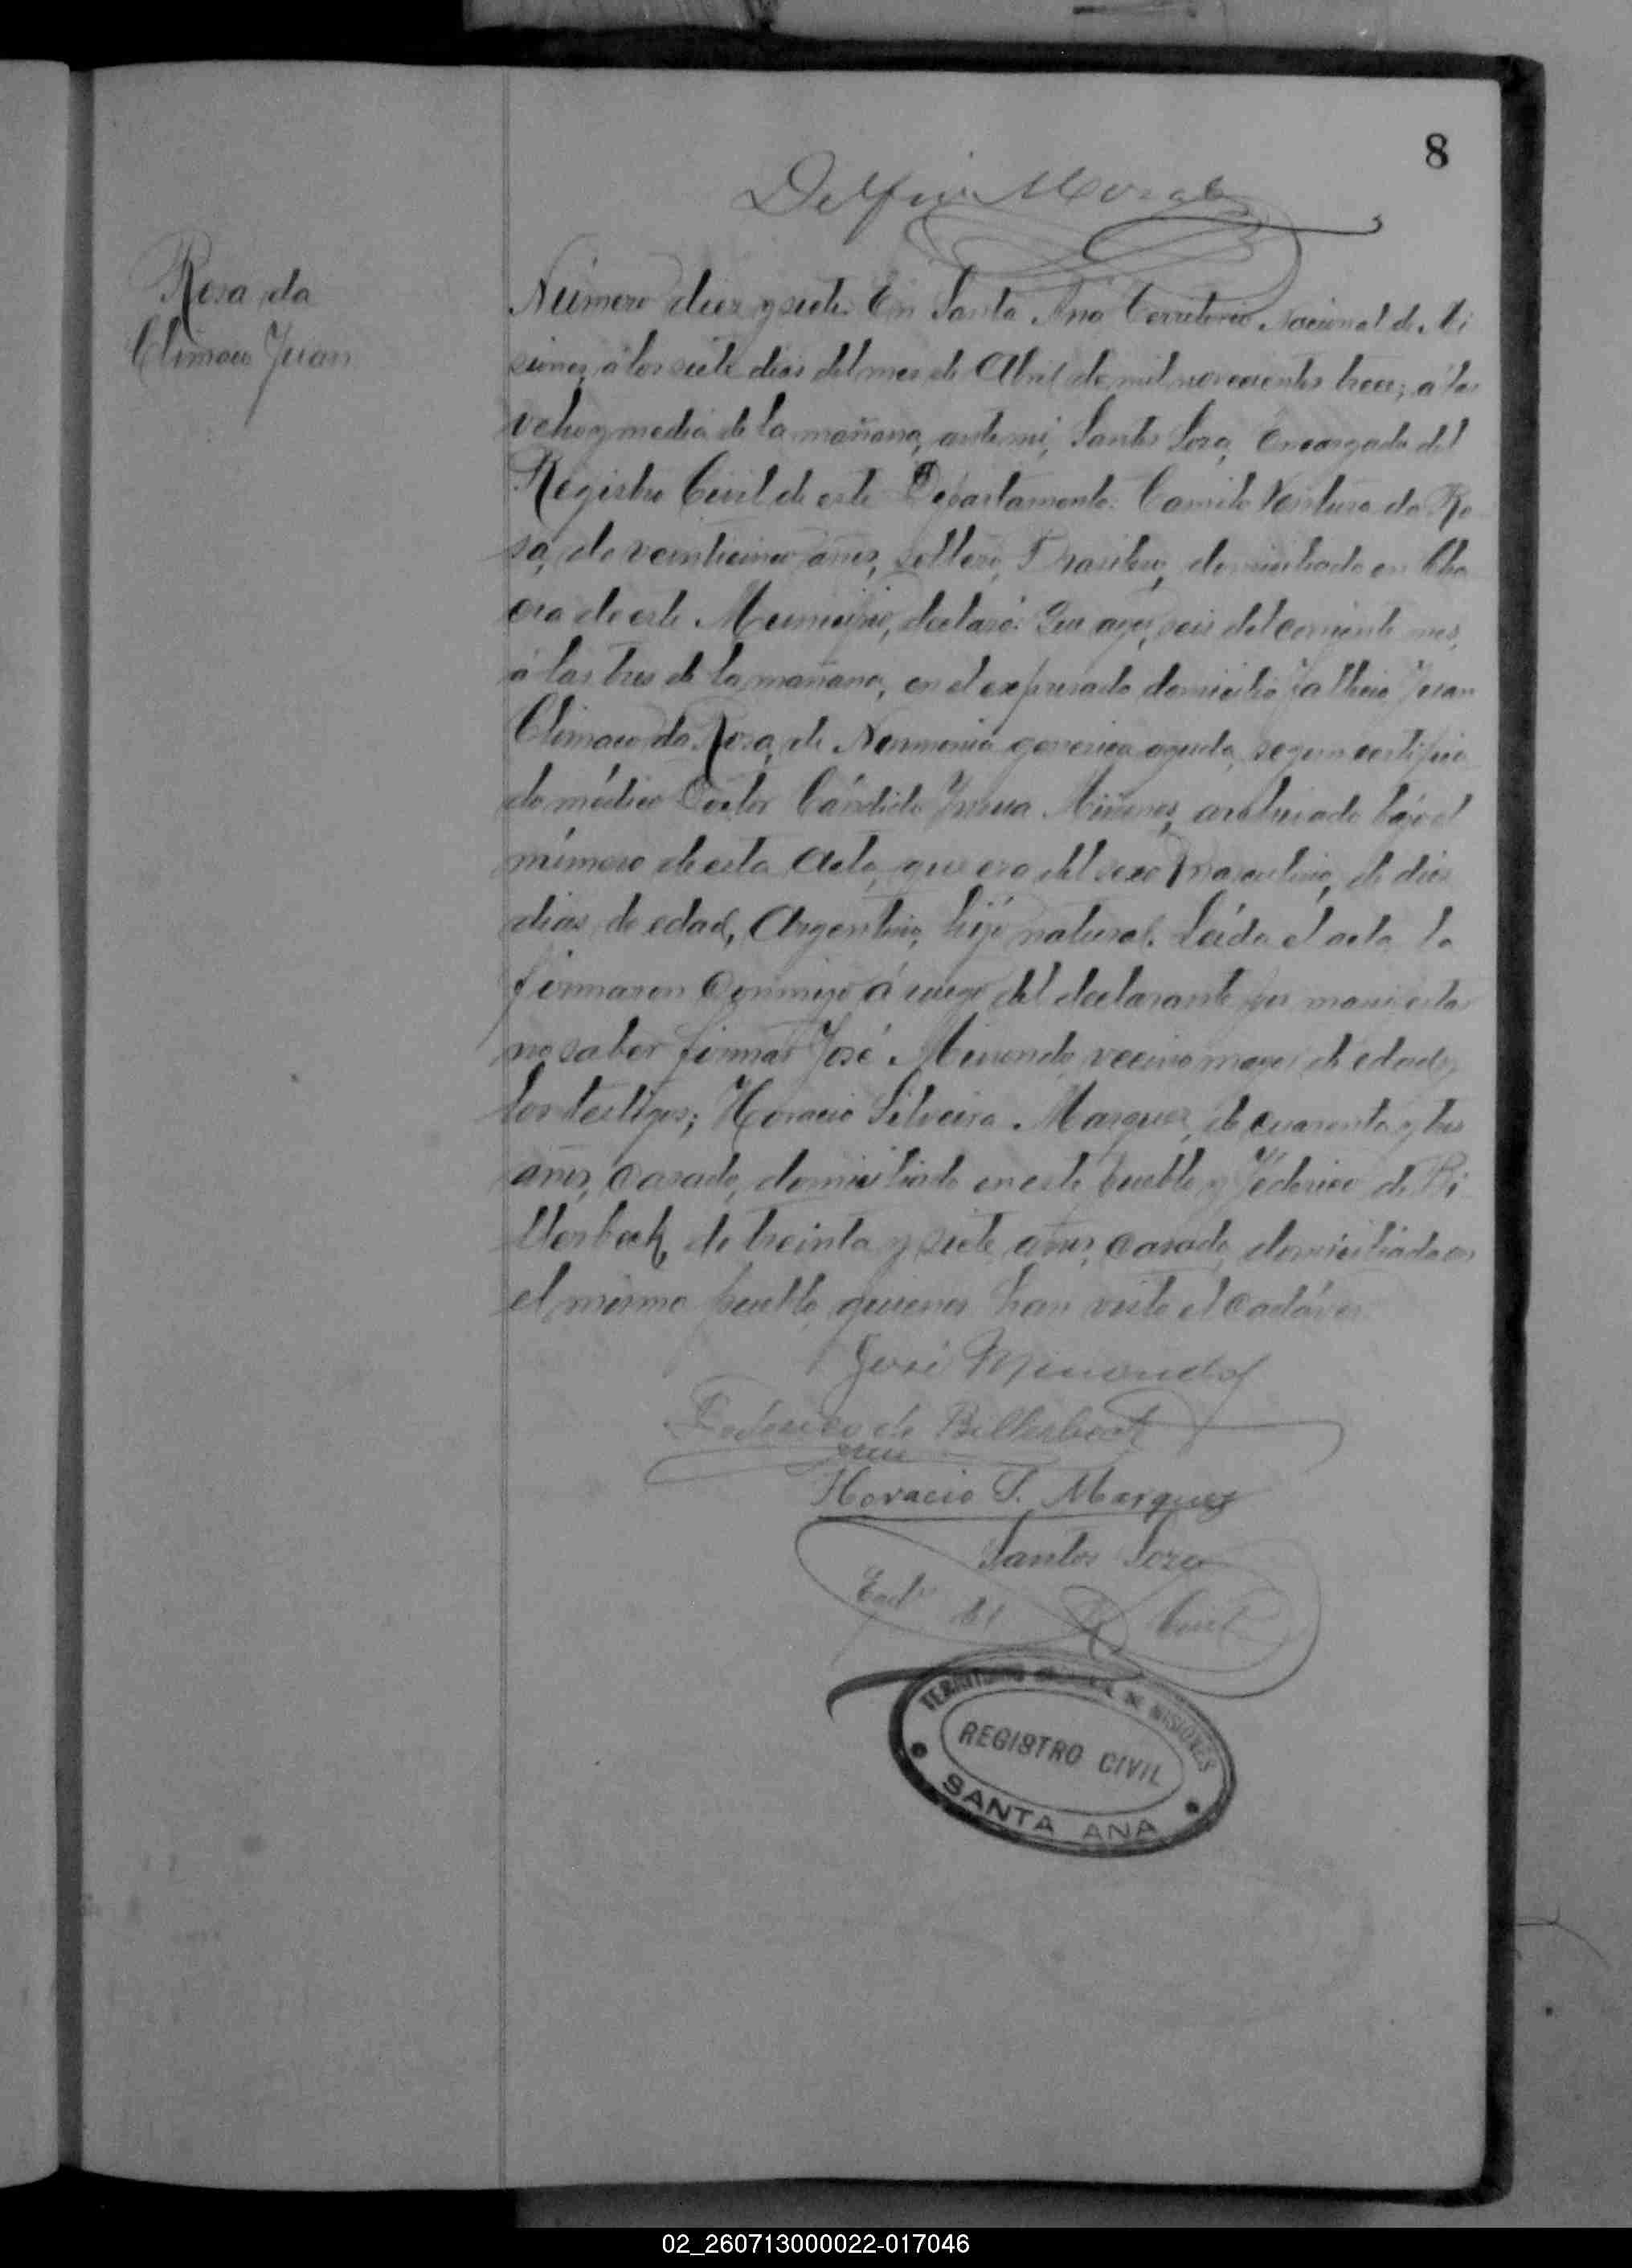 8
Delfin Morales
Rosa da
Climaco Juan
Número diez y siete. En Santa Ana Territorio Nacional de Mi
siones, á los siete dias del mes de Abril de mil novecientos trece; á las
ocho y media de la mañana, ante mi, Santos Loza, Encargado del
Registro Civil de este Departamento: Camilo Ventura da Ro
sa, de veinticinco años, soltero, Brasilero, domiciliado en Cha
cra de este Municipio, declaró: Que ayer, seis del corriente mes,
á las tres de la mañana, en el expresado domicilio falleció Juan
Climaco da Rosa, de Neumonia aguda, segun certifica
do médico Doctor Cándido archivado bajo el
número de esta Acta, que era del sexo Masculino, de diez
dias de edad, Argentino, hijo natural. Leída el acta la
firmaron conmigo á ruego del declarante por manifestar
no saber firmar José Minondo, vecino mayor de edad y
los testigos; Horacio Silveira Marquez, de cuarenta y tres
años, casado, domiciliado en este pueblo y Féderico de Bi
llerbeck, de treinta y siete años, casado, domiciliado en
el mismo pueblo, quienes han visto el cadáver
José Minondo
Federico de Billerbeck
Horacio S. Marquez
Santos Loza
Encdo del R. Civil
TERRITORIO NACIONAL DE MISIONES
REGISTRO CIVIL
SANTA ANA
02_260713000022-017046